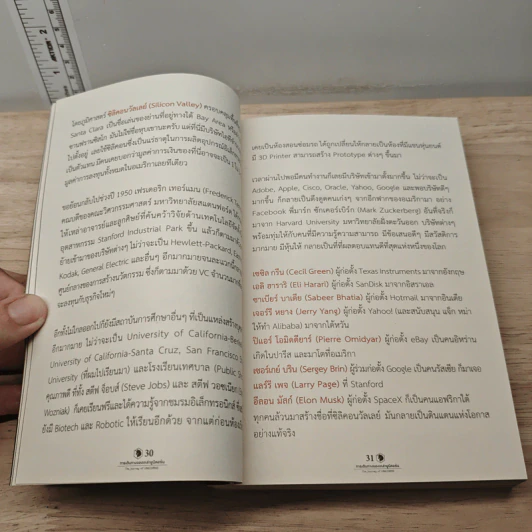 โดยภูมิศาสตร์ ซิลิคอนวัลเลย์ (Silicon Valley) ครอบคลุมพื้นที่
Santa Clara เป็นชื่อเล่นของย่านที่อยู่ทางใต้ Bay Area
ซานฟรานซิสโก มันไม่ใช่ชื่อหุบเขานะครับ แต่ที่นี่มีบริษัท
ไปตั้งอยู่ และใช้ซิลิคอนซึ่งเป็นแร่ธาตุในการผลิตอุปกรณ์
เป็นตัวแทน มีคนเคยบอกว่ามูลค่าการเงินของที่นี่อาจจะเป็น
มูลค่าการลงทุนทั้งหมดในอเมริกาเลยทีเดียว
ขอย้อนกลับไปช่วงปี 1950 เฟรเดอริก เทอร์แมน (Frederick
คณบดีของคณะวิศวกรรมศาสตร์ มหาวิทยาลัยสแตนฟอร์ด
ให้เหล่าอาจารย์และลูกศิษย์ที่ค้นคว้าวิจัยด้านเทคโนโลยี
อุตสาหกรรม Stanford Industrial Park ขึ้น แล้วก็ตามมาด้วย
ย้ายเข้ามาของบริษัทต่างๆ ไม่ว่าจะเป็น Hewlett-Packard,
Kodak, General Electric และอื่นๆ อีกมากมายจนละแวกนี้กลาย
ศูนย์กลางของการสร้างนวัตกรรม ซึ่งก็ตามมาด้วย VC จำนวนมาก
ระดมทุนกับธุรกิจใหม่ๆ
อีกทั้งไม่ไกลออกไปก็ยังมีสถาบันการศึกษาอื่นๆ ที่เป็นแหล่งสร้าง
อีกมากมาย ไม่ว่าจะเป็น University of California-
University of California-Santa Cruz, San Francisco
University (ที่ผมไปเรียนมา) และโรงเรียนเทศบาล (Public
คุณภาพดี ที่ทั้ง สตีฟ จ็อบส์ (Steve Jobs) และ สตีฟ วอซเนียก
Wozniak) ก็เคยเรียนฟรีและได้ความรู้จากชมรมอิเล็กทรอนิกส์
ยังมี Biotech และ Robotic ให้เรียนอีกด้วย จากแต่ก่อนห้อง
30
การเดินทางของเจ้าหมูบินแห่งเอ็น
เคยเป็นห้องสอนซ่อมรถ ได้ถูกเปลี่ยนไปให้กลายเป็นห้องที่มีแขนหุ่นยนต์
มี 3D Printer สามารถสร้าง Prototype ต่างๆ ขึ้นมา
เวลาผ่านไปพอมีคนทำงานก็เลยมีบริษัทเข้ามาตั้งมากขึ้น ไม่ว่าจะเป็น
Adobe, Apple, Cisco, Oracle, Yahoo, Google และพอบริษัทดีๆ
มากขึ้น ก็กลายเป็นดึงดูดคนเก่งๆ จากอีกฟากของอเมริกามา อย่าง
Facebook ที่มาร์ก ซักเคอร์เบิร์ก (Mark Zuckerberg) อันที่จริงก็
มาจาก Harvard University มหาวิทยาลัยฝั่งตะวันออก บริษัทต่างๆ
พร้อมทุ่มให้กับคนที่มีความรู้ความสามารถ มีข้อเสนอดีๆ มีสวัสดิการ
มากมาย มีหุ้นให้ กลายเป็นที่ที่ผลตอบแทนดีที่สุดแห่งหนึ่งของโลก
เซซิล กรีน (Cecil Green) ผู้ก่อตั้ง Texas Instruments มาจากอังกฤษ
เอลิ ฮารารี (Eli Harari) ผู้ก่อตั้ง SanDisk มาจากอิสราเอล
ซาเบียร์ บาเตีย (Sabeer Bhatia) ผู้ก่อตั้ง Hotmail มาจากอินเดีย
เจอร์รี หยาง (Jerry Yang) ผู้ก่อตั้ง Yahoo! (และสนับสนุน แจ็ก หม่า
ให้ทำ Alibaba) มาจากไต้หวัน
ปิแอร์ โอมิดดียาร์ (Pierre Omidyar) ผู้ก่อตั้ง eBay เป็นคนอิหร่าน
เกิดในปารีส และมาโตที่อเมริกา
เซอร์เกย์ บริน (Sergey Brin) ผู้ร่วมก่อตั้ง Google เป็นคนรัสเซีย ก็มาเจอ
แลร์รี เพจ (Larry Page) ที่ Stanford
อีลอน มัสก์ (Elon Musk) ผู้ก่อตั้ง SpaceX ก็เป็นคนแอฟริกาใต้
ทุกคนล้วนมาสร้างชื่อที่ซิลิคอนวัลเลย์ มันกลายเป็นดินแดนแห่งโอกาส
อย่างแท้จริง
31